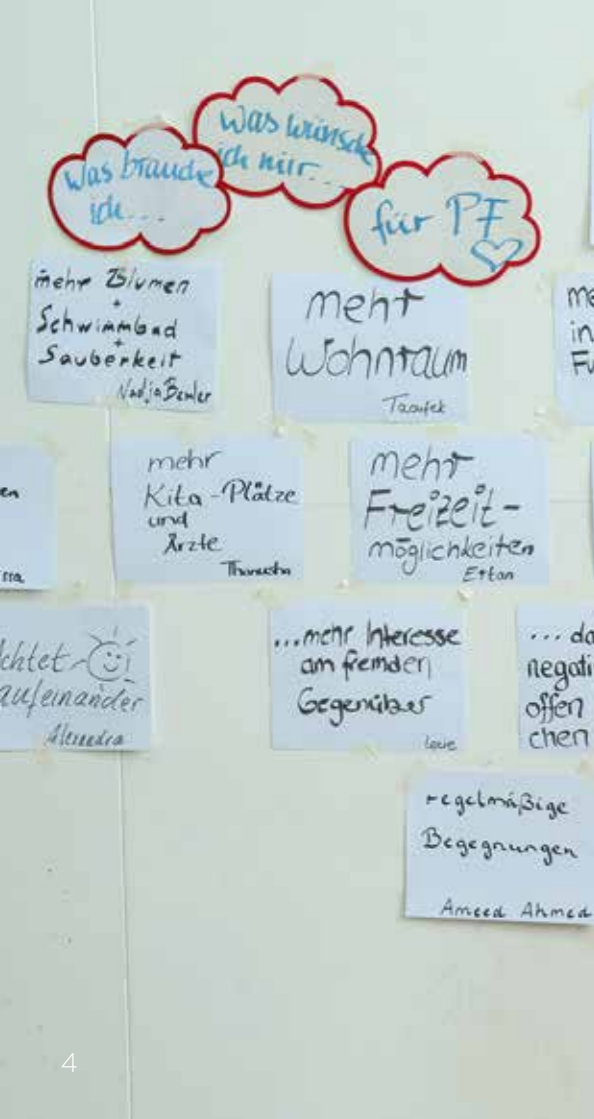 Was wünsche
ich mir...
Was brauche
ich...
für PF
mehr Blumen
+
Schwimmbad
+
Sauberkeit
mehr
Wohnraum
Taoufek
me
in
Fu
en
ssa
mehr
Kita-Plätze
und
Ärzte
Thanusha
mehr
Freizeit-
möglichkeiten
Ertan
chtet
aufeinander
Alexandra
...mehr Interesse
am fremden
Gegenüber
Louie
... da
negati
offen
chen
regelmäßige
Begegnungen
Ameed Ahmed
4